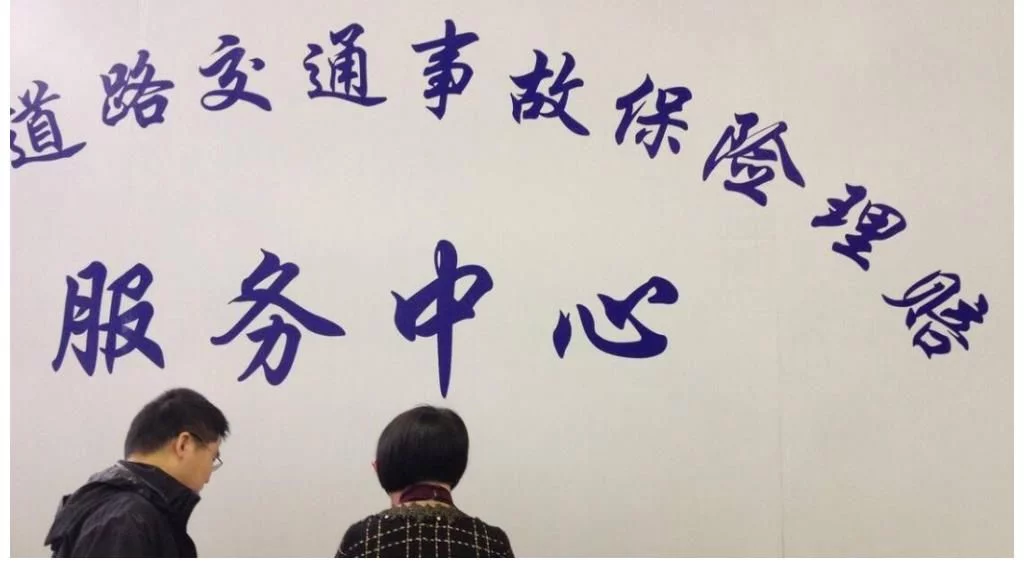 道路交通事故保险理赔
服务中心